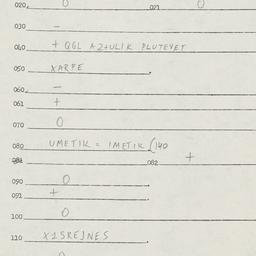 020. 0 021 0
030 –
040 + QGL A2+ULIK PLUTEVET
050 XARPE
060. –
061 +
070 0
080 UMETIK = IMETIK (140
081 082 +
090 0
091 +
100 0
110 X1SREJNES